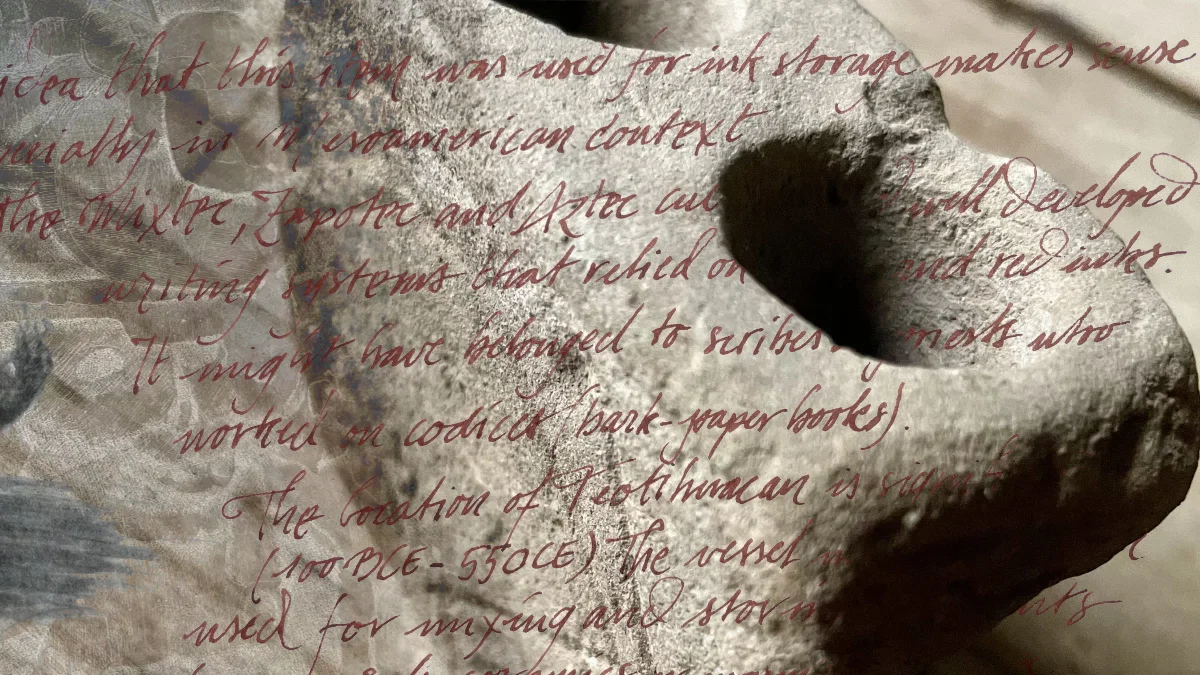 idea that this item was used for ink storage makes sense
in Mesoamerican context
the Mixtec, Zapotec and Aztec well developed
writing systems that relied on and red inks.
It might have belonged to scribes who
worked on codices (bark-paper books).
The location of Teotihuacan is
(100 BCE - 550 CE) The vessel
used for mixing and